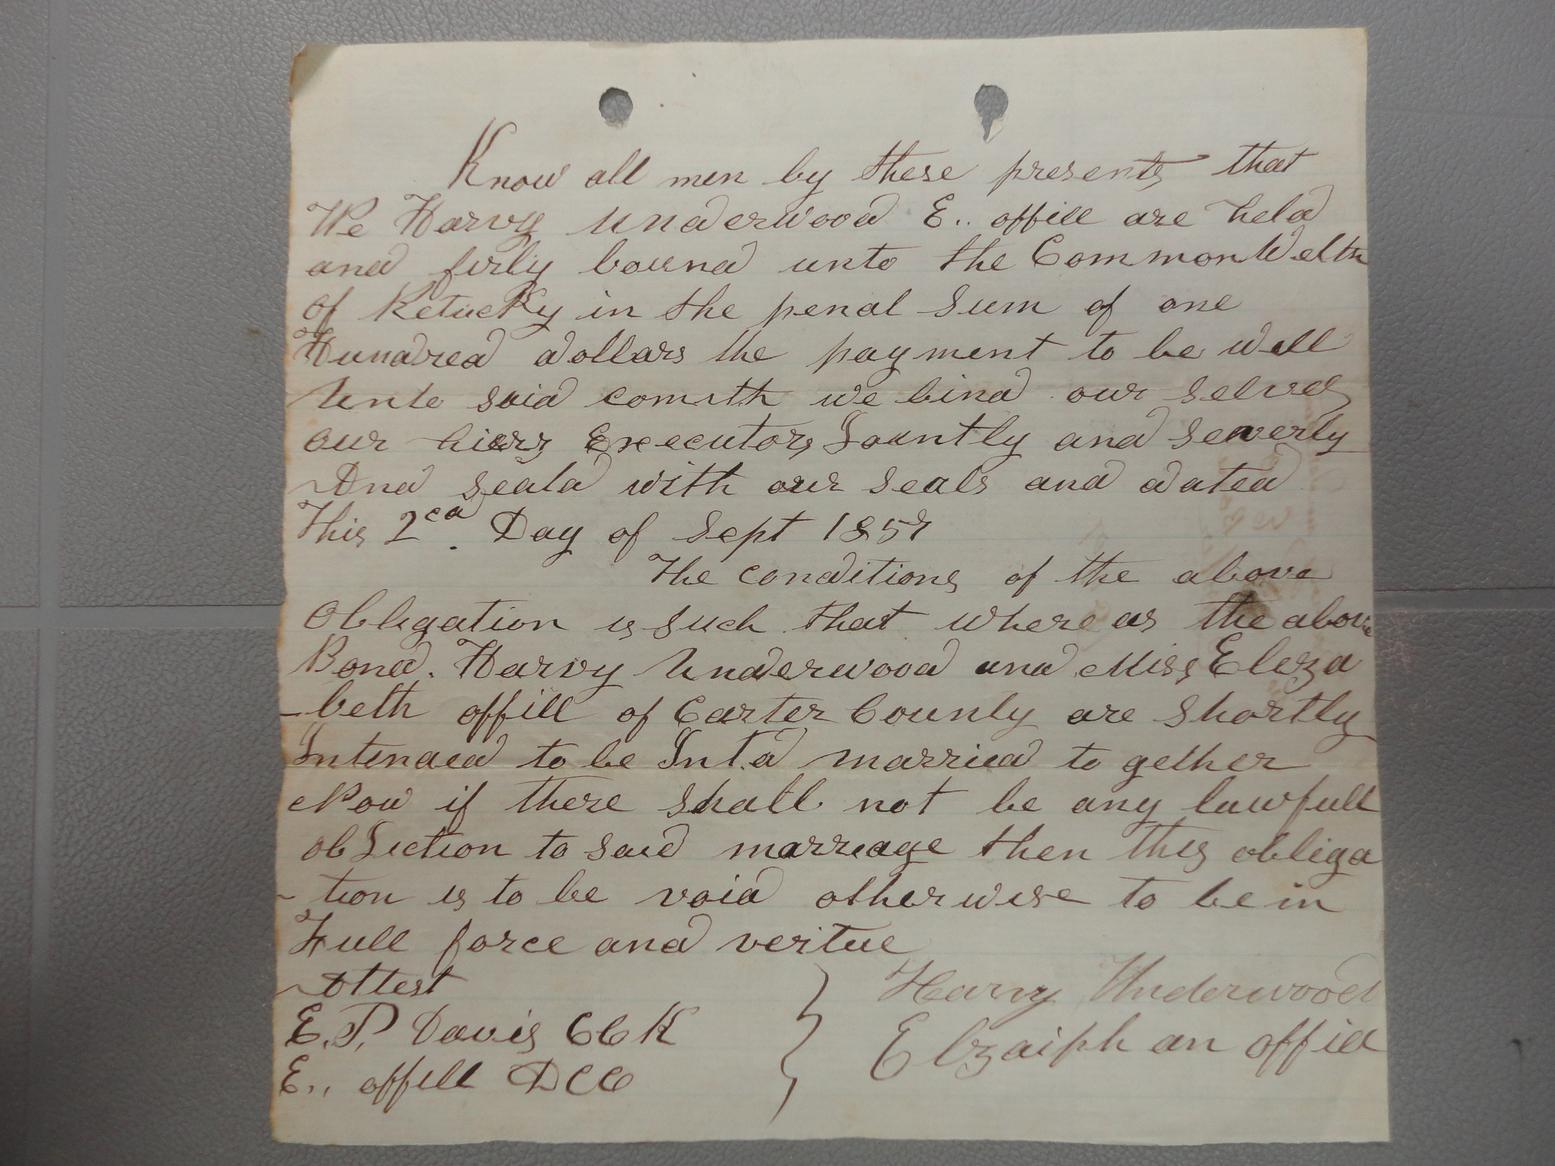 Know all men by these presents that
We Harvy Underwood E.. offill are held
and firly bound unto the CommonWelth
of Ketucky in the penal Sum of one
Hundred dollars the payment to be well
Unto said comith we bind our selves
our hiers Executors Jountly and severly
And seald with our seals and dated
This 2cd. Day of Sept 1857
The conditions of the above
Obligation is such that where as the above
Bond. Harvy Underwood and Miss Eleza
-beth offill of Carter County are Shortly
Intended to be Int.d married to gether
Now if there shall not be any lawfull
obJection to said marriage then this obliga
-tion is to be void otherwise to be in
Full force and vertue
Attest
E.P. Davis CCK
E.. offill DCC
Harvy Underwood
Elzaiph an offill